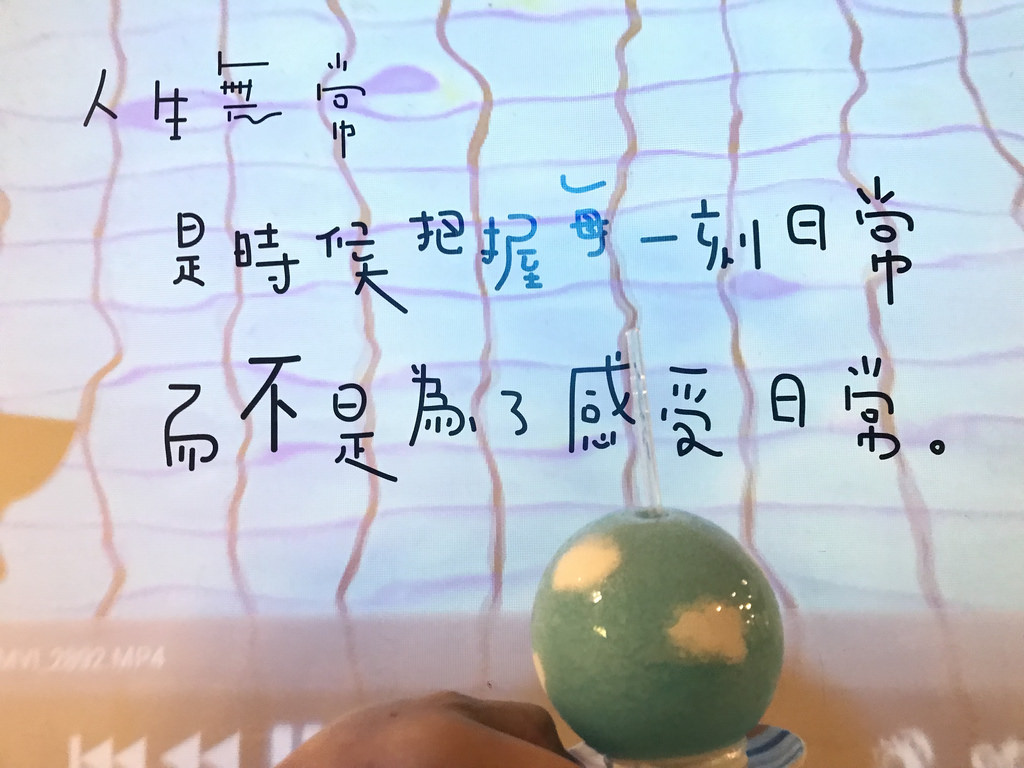 人生無常
是時候把握每一刻日常
而不是為了感受日常。
2992.MP4